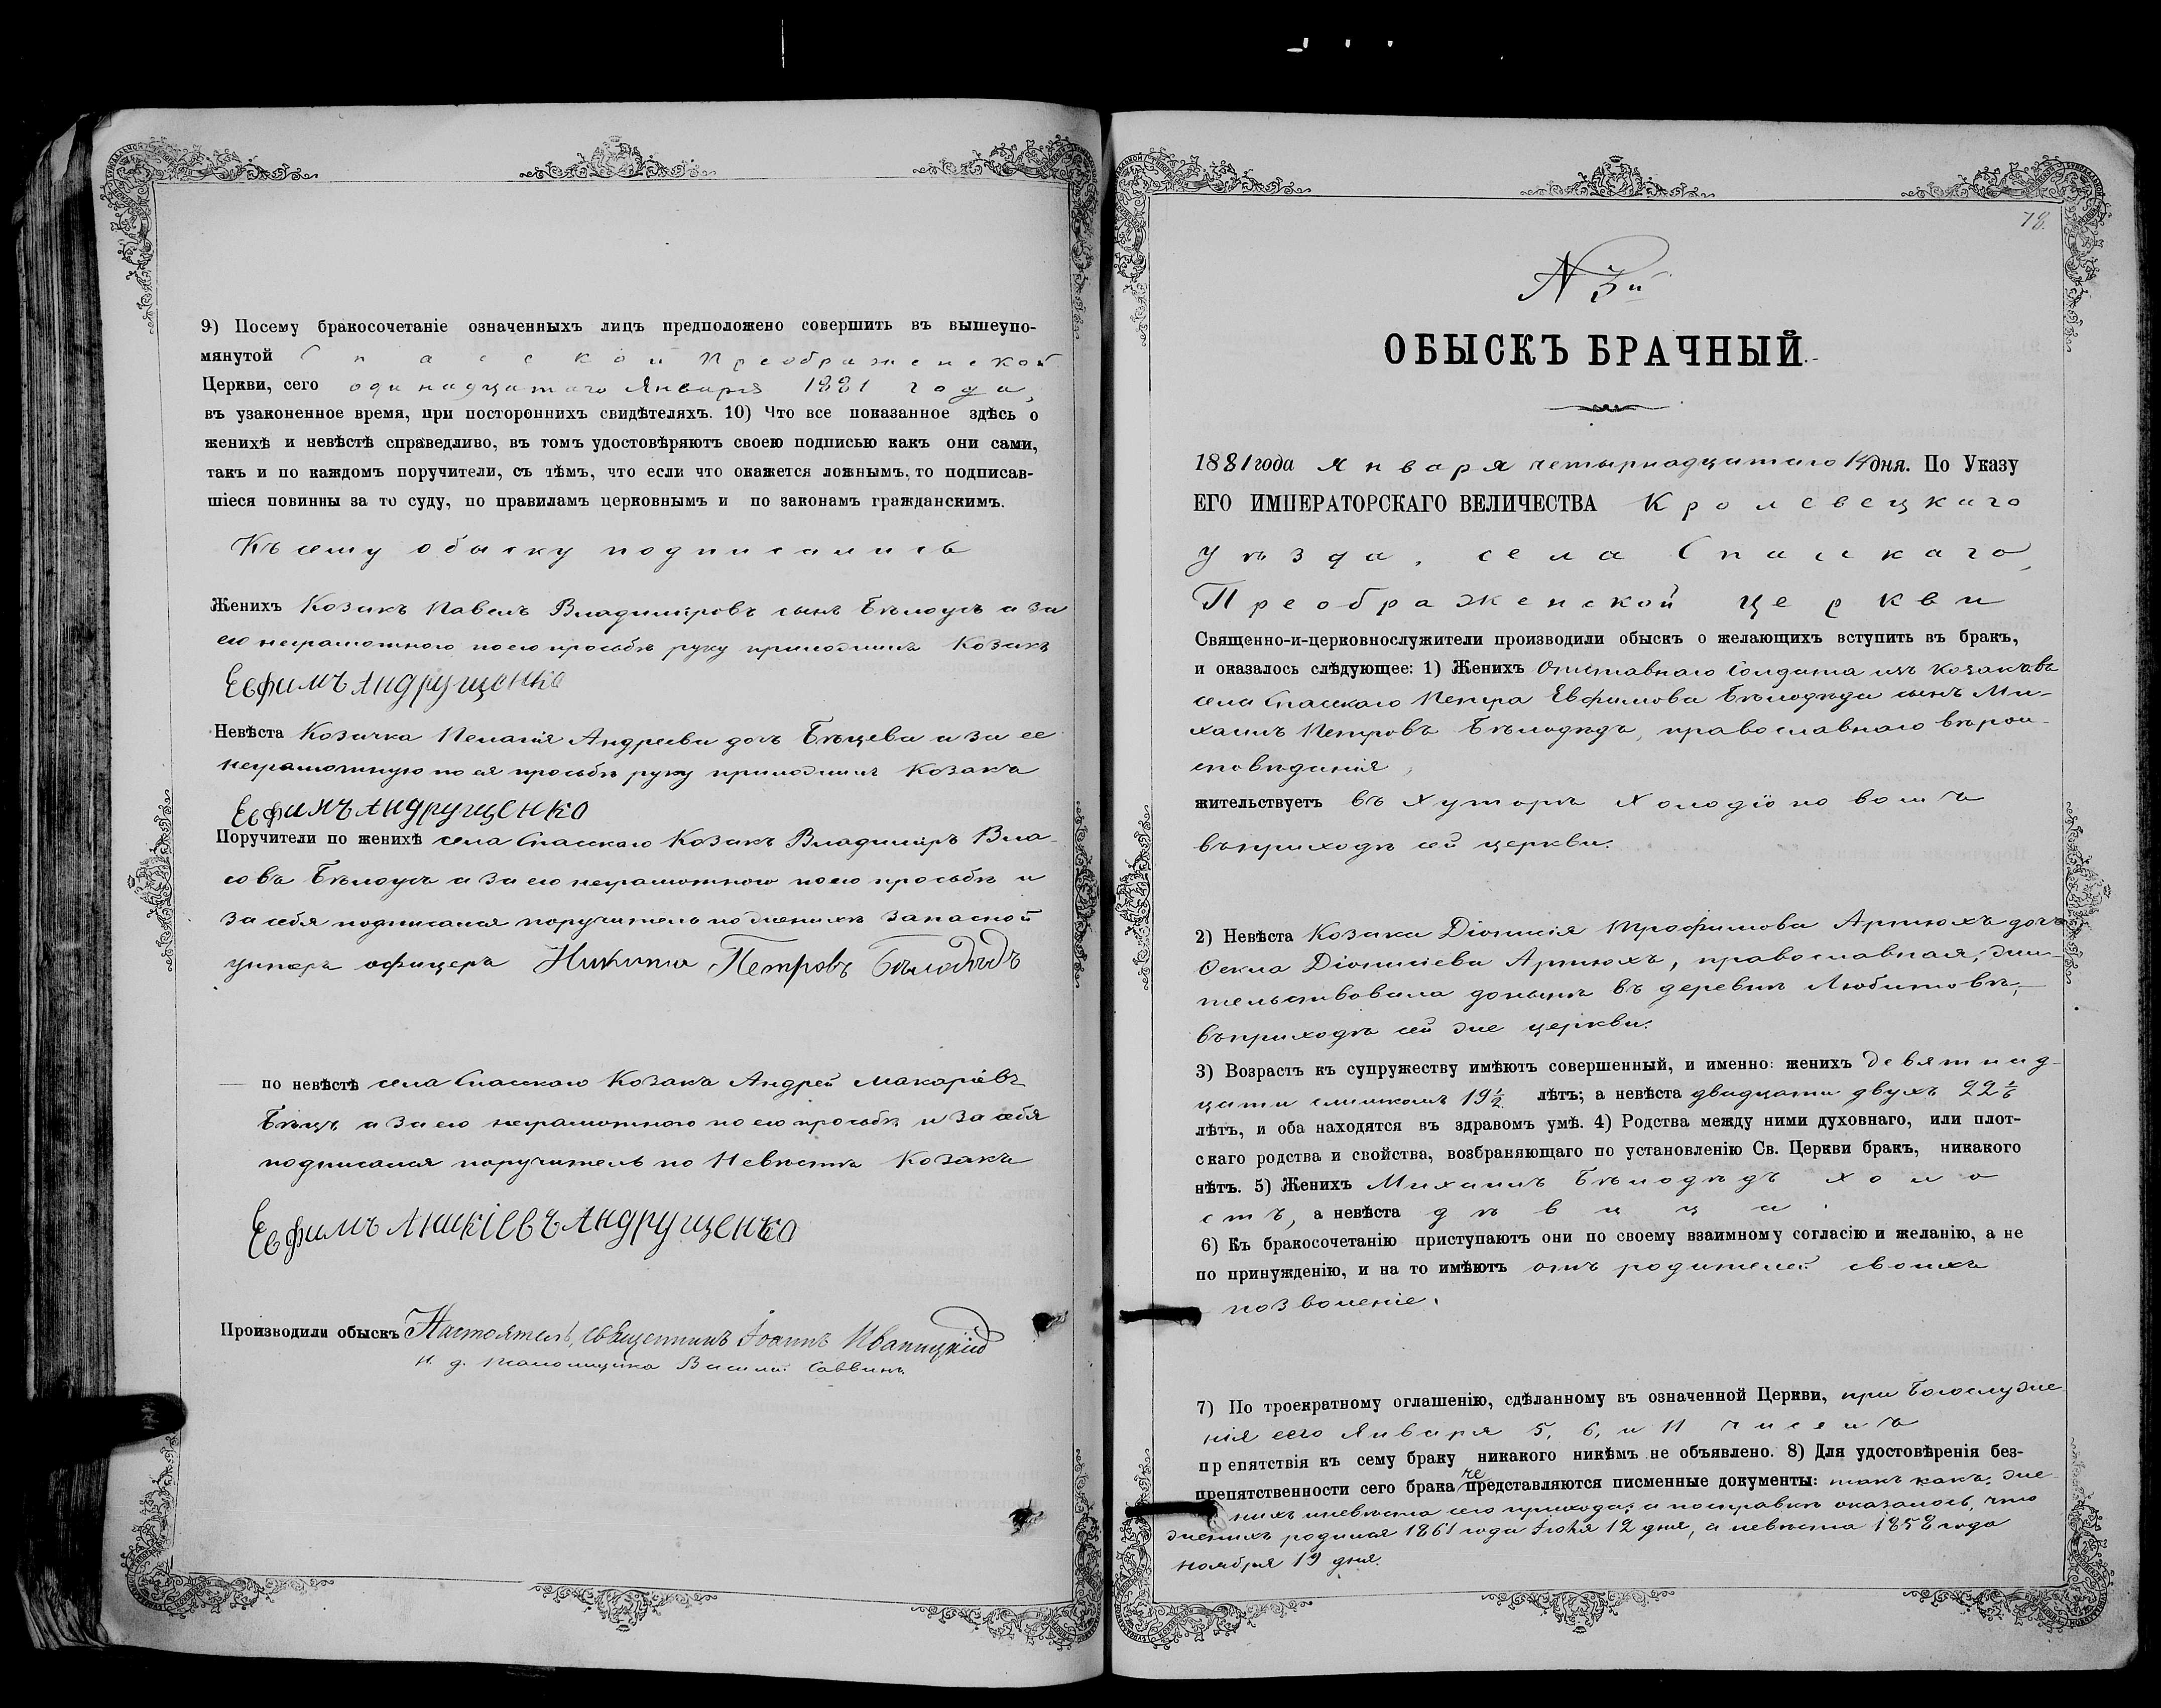 9) Посему бракосочетаніе означенныхъ лицъ предположено совершить въ вышеупо-
мянутой Спасской Преображенской
Церкви, сего одинадцатаго Января 1881 года,
въ узаконенное время, при постороннихъ свидѣтеляхъ. 10) Что все показанное здѣсь о
женихѣ и невѣстѣ справедливо, въ томъ удостовѣряютъ своею подписью какъ они сами,
такъ и по каждомъ поручители, съ тѣмъ, что если что окажется ложнымъ, то подписав-
шіеся повинны за то суду, по правиламъ церковнымъ и по законамъ гражданскимъ.
Къ сему обыску подписались
Женихъ Козакъ Павелъ Владиміровъ сынъ Бѣлоусъ а за
его неграмотного по его просьбѣ руку приложилъ Козакъ
Евфимъ Андрущенко
Невѣста Козачка Пелагія Андреева дочь Бѣцева а за ее
неграмотную по ея просьбѣ руку приложилъ Козакъ
Евфимъ Андрущенко
Поручители по женихѣ села Спасскаго Козакъ Владиміръ Вла-
совъ Бѣлоусъ а за его неграмотного по его просьбѣ и
за себя подписался поручитель по женихѣ запасной
унтеръ офицеръ Никита Петровъ Бѣлодѣдъ
по невѣстѣ села Спасскаго Козакъ Андрей Макаріевъ
Бѣцъ а за его неграмотного по его просьбѣ и за себя
подписался поручитель по Невѣстѣ Козакъ
Евфимъ Аникіевъ Андрущенко
Производили обыскъ Настоятель, священникъ Іоаннъ Иваницкій
И. д. Псаломщика Василій Саввинъ.
78.
N 3й
ОБЫСКЪ БРАЧНЫЙ.
1881 года Января четырнадцатаго 14 дня. По Указу
ЕГО ИМПЕРАТОРСКАГО ВЕЛИЧЕСТВА Кролевецкаго
уѣзда, села Спасскаго,
Преображенской церкви
Священно-и-церковнослужители производили обыскъ о желающихъ вступить въ бракъ,
и оказалось слѣдующее: 1) Женихъ Отставнаго Солдата изъ козаковъ
села Спасскаго Петра Евфимова Бѣлодѣда сынъ Ми-
хаилъ Петровъ Бѣлодѣдъ, православнаго вѣрои-
сповѣданія,
жительствуетъ въ Хуторѣ
въ приходѣ сей церкви.
2) Невѣста Козака Діонисія Трофимова Артюхъ дочь
Ѳекла Діонисіева Артюхъ, православная, жи-
тельствовала донынѣ въ деревнѣ Любитовѣ,
въ приходѣ сей же церкви.
3) Возрастъ къ супружеству имѣютъ совершенный, и именно: женихъ девятнад-
цати слишкомъ 19 ½ лѣтъ; а невѣста двадцати двухъ 22 1/6
лѣтъ, и оба находятся въ здравомъ умѣ. 4) Родства между ними духовнаго, или плот-
скаго родства и свойства, возбраняющаго по установленію Св. Церкви бракъ, никакого
нѣтъ. 5) Женихъ Михаилъ Бѣлодѣдъ холо
стъ, а невѣста дѣвица.
6) Къ бракосочетанію приступаютъ они по своему взаимному согласію и желанію, а не
по принужденію, и на то имѣютъ отъ родителей своихъ
позволеніе.
7) По троекратному оглашенію, сдѣланному въ означенной Церкви, при Богослуже
нія сего Января 5, 6, и 11 числъ
препятствія къ сему браку никакого никѣмъ не объявлено. 8) Для удостовѣренія без-
препятственности сего брака не представляются писменные документы: такъ какъ, же-
нихъ и невѣста сего прихода; а по справкѣ оказалось, что
женихъ родился 1861 года Іюля 12 дня, а невѣста 1858 года
ноября 19 дня.